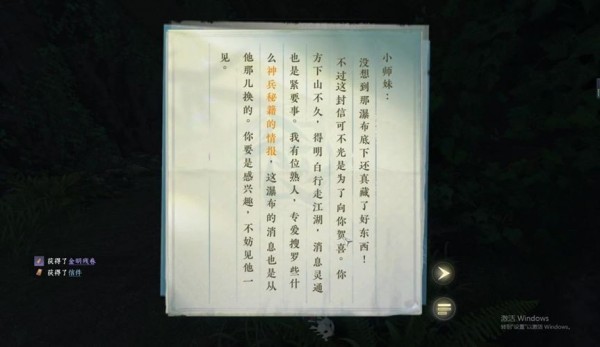 小师妹：
没想到那瀑布底下还真藏了好东西！
不过这封信可不光是为了向你贺喜。你
方下山不久，得明白行走江湖，消息灵通
也是紧要事。我有位熟人，专爱搜罗些什
么神兵秘籍的情报，这瀑布的消息也是从
他那儿换的。你要是感兴趣，不妨见他一
见。
获得了金明残卷
获得了信件
激活 Windows
转到"设置"以激活 Windows。